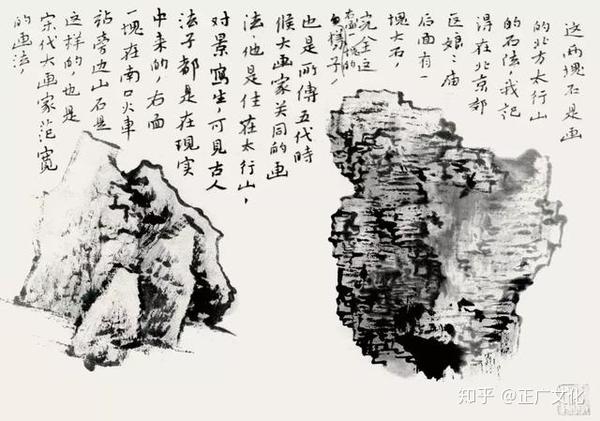 这两块石是画
的北方太行山
的石法，我记
得在北京郊
区娘〻庙
后面有一
块大石，
完全这
右面一块的
樣子，
也是所傳五代時
候大画家关同的画
法，他是住在太行山，
对景寫生，可見古人
法子都是在現实
中来的，右面
一塊在南口火車
站旁边山石是
这样的，也是
宋代大画家范寬
的画法，
知乎 @正广文化